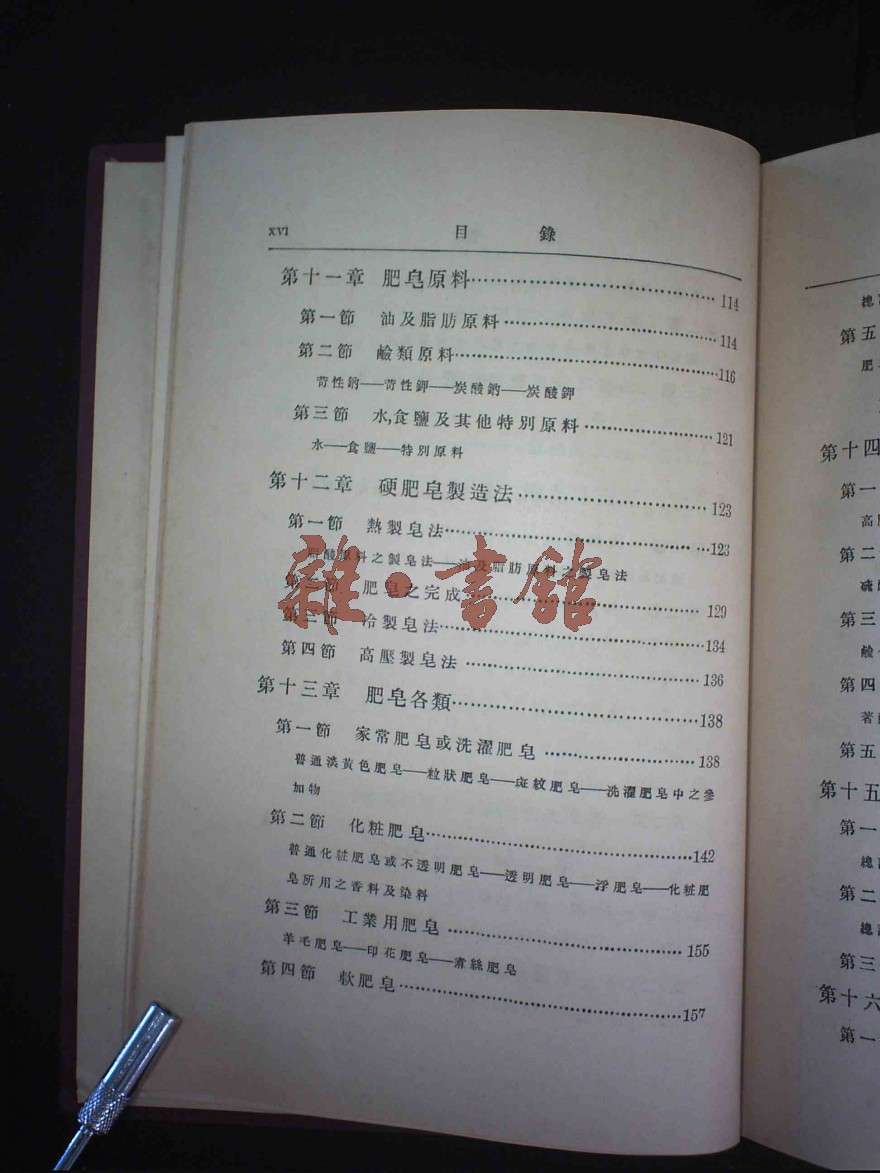 xvi 目 錄
第十一章 肥皂原料……114
第一節 油及脂肪原料……114
第二節 鹼類原料……116
苛性鈉——苛性鉀——炭酸鈉——炭酸鉀
第三節 水,食鹽及其他特別原料……121
水——食鹽——特別原料
第十二章 硬肥皂製造法……123
第一節 熱製皂法……123
脂酸原料之製皂法——油及脂肪原料之製皂法
第二節 肥皂之完成……129
第三節 冷製皂法……134
第四節 高壓製皂法……136
第十三章 肥皂各類……138
第一節 家常肥皂或洗濯肥皂……138
普通淡黃色肥皂——粒狀肥皂——斑紋肥皂——洗濯肥皂中之參
加物
第二節 化粧肥皂……142
普通化粧肥皂或不透明肥皂——透明肥皂——浮肥皂——化粧肥
皂所用之香料及染料
第三節 工業用肥皂……155
羊毛肥皂——印花肥皂——煮絲肥皂
第四節 軟肥皂……157
雜·書館
總
第五
肥
第十四
第一
高
第二
硫
第三
鹼
第四
著
第五
第十五
第一
總
第二
總
第三
第十六
第一